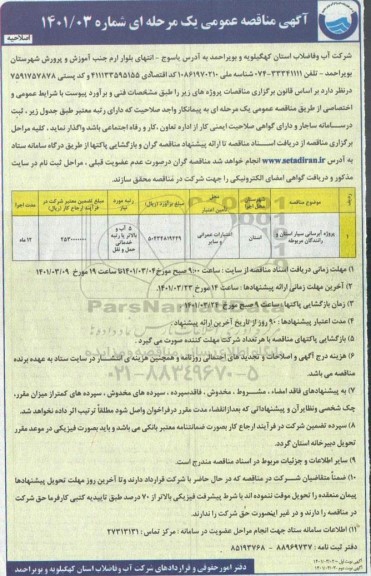 آگهی مناقصه عمومی یک مرحله ای شماره ۱۴۰۱/۰۳
اصلاحیه
شرکت آب وفاضلاب استان کهگیلویه و بویراحمد به آدرس یاسوج - انتهای بلوار ارم جنب آموزش و پرورش شهرستان
بویراحمد - تلفن ۳۳۳۴۱۱۱۱-۰۷۴ شناسه ملی ۱۰۸۶۱۹۷۰۲۱۰ کد اقتصادی ۴۱۱۱۳۳۵۹۵۱۵۵ و کد پستی ۷۵۹۱۷۵۷۸۷۸
درنظر دارد بر اساس قانون برگزاری مناقصات پروژه های زیر را طبق مشخصات فنی و برآورد پیوست با شرایط عمومی و
اختصاصی از طریق مناقصه عمومی یک مرحله ای به پیمانکار واجد صلاحیت که دارای رتبه معتبر طبق جدول زیر ، ثبت
درسامانه ساجار و دارای گواهی صلاحیت ایمنی کار از اداره تعاون ،کار و رفاه اجتماعی باشد واگذار نماید . کلیه مراحل
برگزاری مناقصه از دریافت اسناد مناقصه تا ارائه پیشنهاد مناقصه گران و بازگشایی پاکتها از طریق درگاه سامانه ستاد
به آدرس www.setadiran.ir انجام خواهد شد مناقصه گران درصورت عدم عضویت قبلی ، مراحل ثبت نام در سایت
مذکور و دریافت گواهی امضای الکترونیکی را جهت شرکت در مناقصه محقق سازند.
موضوع مناقصه
محل تامین اعتبار
مبلغ برآورد (ریال)
رتبه مورد نیاز
مبلغ تضمین معتبر شرکت در فرآیند ارجاع کار (ریال)
مدت اجرا
۱
پروژه آبرسانی سیار استان و رانندگان مربوطه
استان
اعتبارات عمرانی و سایر
۵ آب و بالاتر یا رتبه خدماتی حمل و نقل
۱۲ ماه
۱) مهلت زمانی دریافت اسناد مناقصه از سایت : ساعت ۹:۰۰ صبح مورخ ۱۴۰۱/۰۳/۰۴ تا ساعت ۱۹ مورخ ۱۴۰۱/۰۳/۰۹
۲) آخرین مهلت زمانی ارائه پیشنهادها : ساعت ۱۴ مورخ ۱۴۰۱/۰۳/۲۳
۳) زمان بازگشایی پاکتها : ساعت ۹ صبح مورخ ۱۴۰۱/۰۳/۲۴
۴) مدت اعتبار پیشنهادها : ۹۰ روز از تاریخ آخرین ارائه پیشنهاد .
۵) بازگشایی پاکتهای مناقصه با هر تعداد شرکت مهلت کننده صورت می گیرد .
۶) هزینه درج آگهی و اصلاحات و تجدید های احتمالی روزنامه و همچنین هزینه ی انتشار در سایت ستاد به عهده برنده
مناقصه می باشد.
۷) به پیشنهادهای فاقد امضاء ، مشروط ، مخدوش ، فاقدسپرده ، سپرده های مخدوش ، سپرده های کمتراز میزان مقرر،
چک شخصی ونظایرآن و پیشنهاداتی که بعدازانقضاء مدت مقرر درفراخوان واصل شود مطلقا ترتیب اثر داده نخواهد شد.
۸) سپرده تضمین شرکت در فرآیند ارجاع کار بصورت ضمانتنامه معتبر بانکی می باشد و باید بصورت فیزیکی در موعد مقرر
تحویل دبیرخانه استان گردد.
۹) سایر اطلاعات و جزئیات مربوط در اسناد مناقصه مندرج است.
۱۰) ضمنا متقاضیان شرکت در مناقصه که در حال حاضر با شرکت قرارداد دارند وتا آخرین روز مهلت تحویل پیشنهادها
پیمان منعقده را تحویل موقت ننموده اند با شرط پیشرفت فیزیکی بالاتر از ۷۰ درصد طبق تاییدیه کتبی کارفرما حق شرکت
در مناقصه را دارند و در غیر اینصورت حق شرکت را ندارند.
۱۱) اطلاعات سامانه ستاد جهت انجام مراحل عضویت در سامانه : مرکز تماس : ۲۷۳۱۳۱۳۱
دفتر ثبت نامه : ۸۸۹۶۹۷۳۷ - ۸۵۱۹۳۷۶۸
دفتر امورحقوقی و قراردادهای شرکت آب وفاضلاب استان کهگیلویه و بویراحمد
ParsNamadData
۰۲۱-۸۸۳۴۹۶۷۰-۵